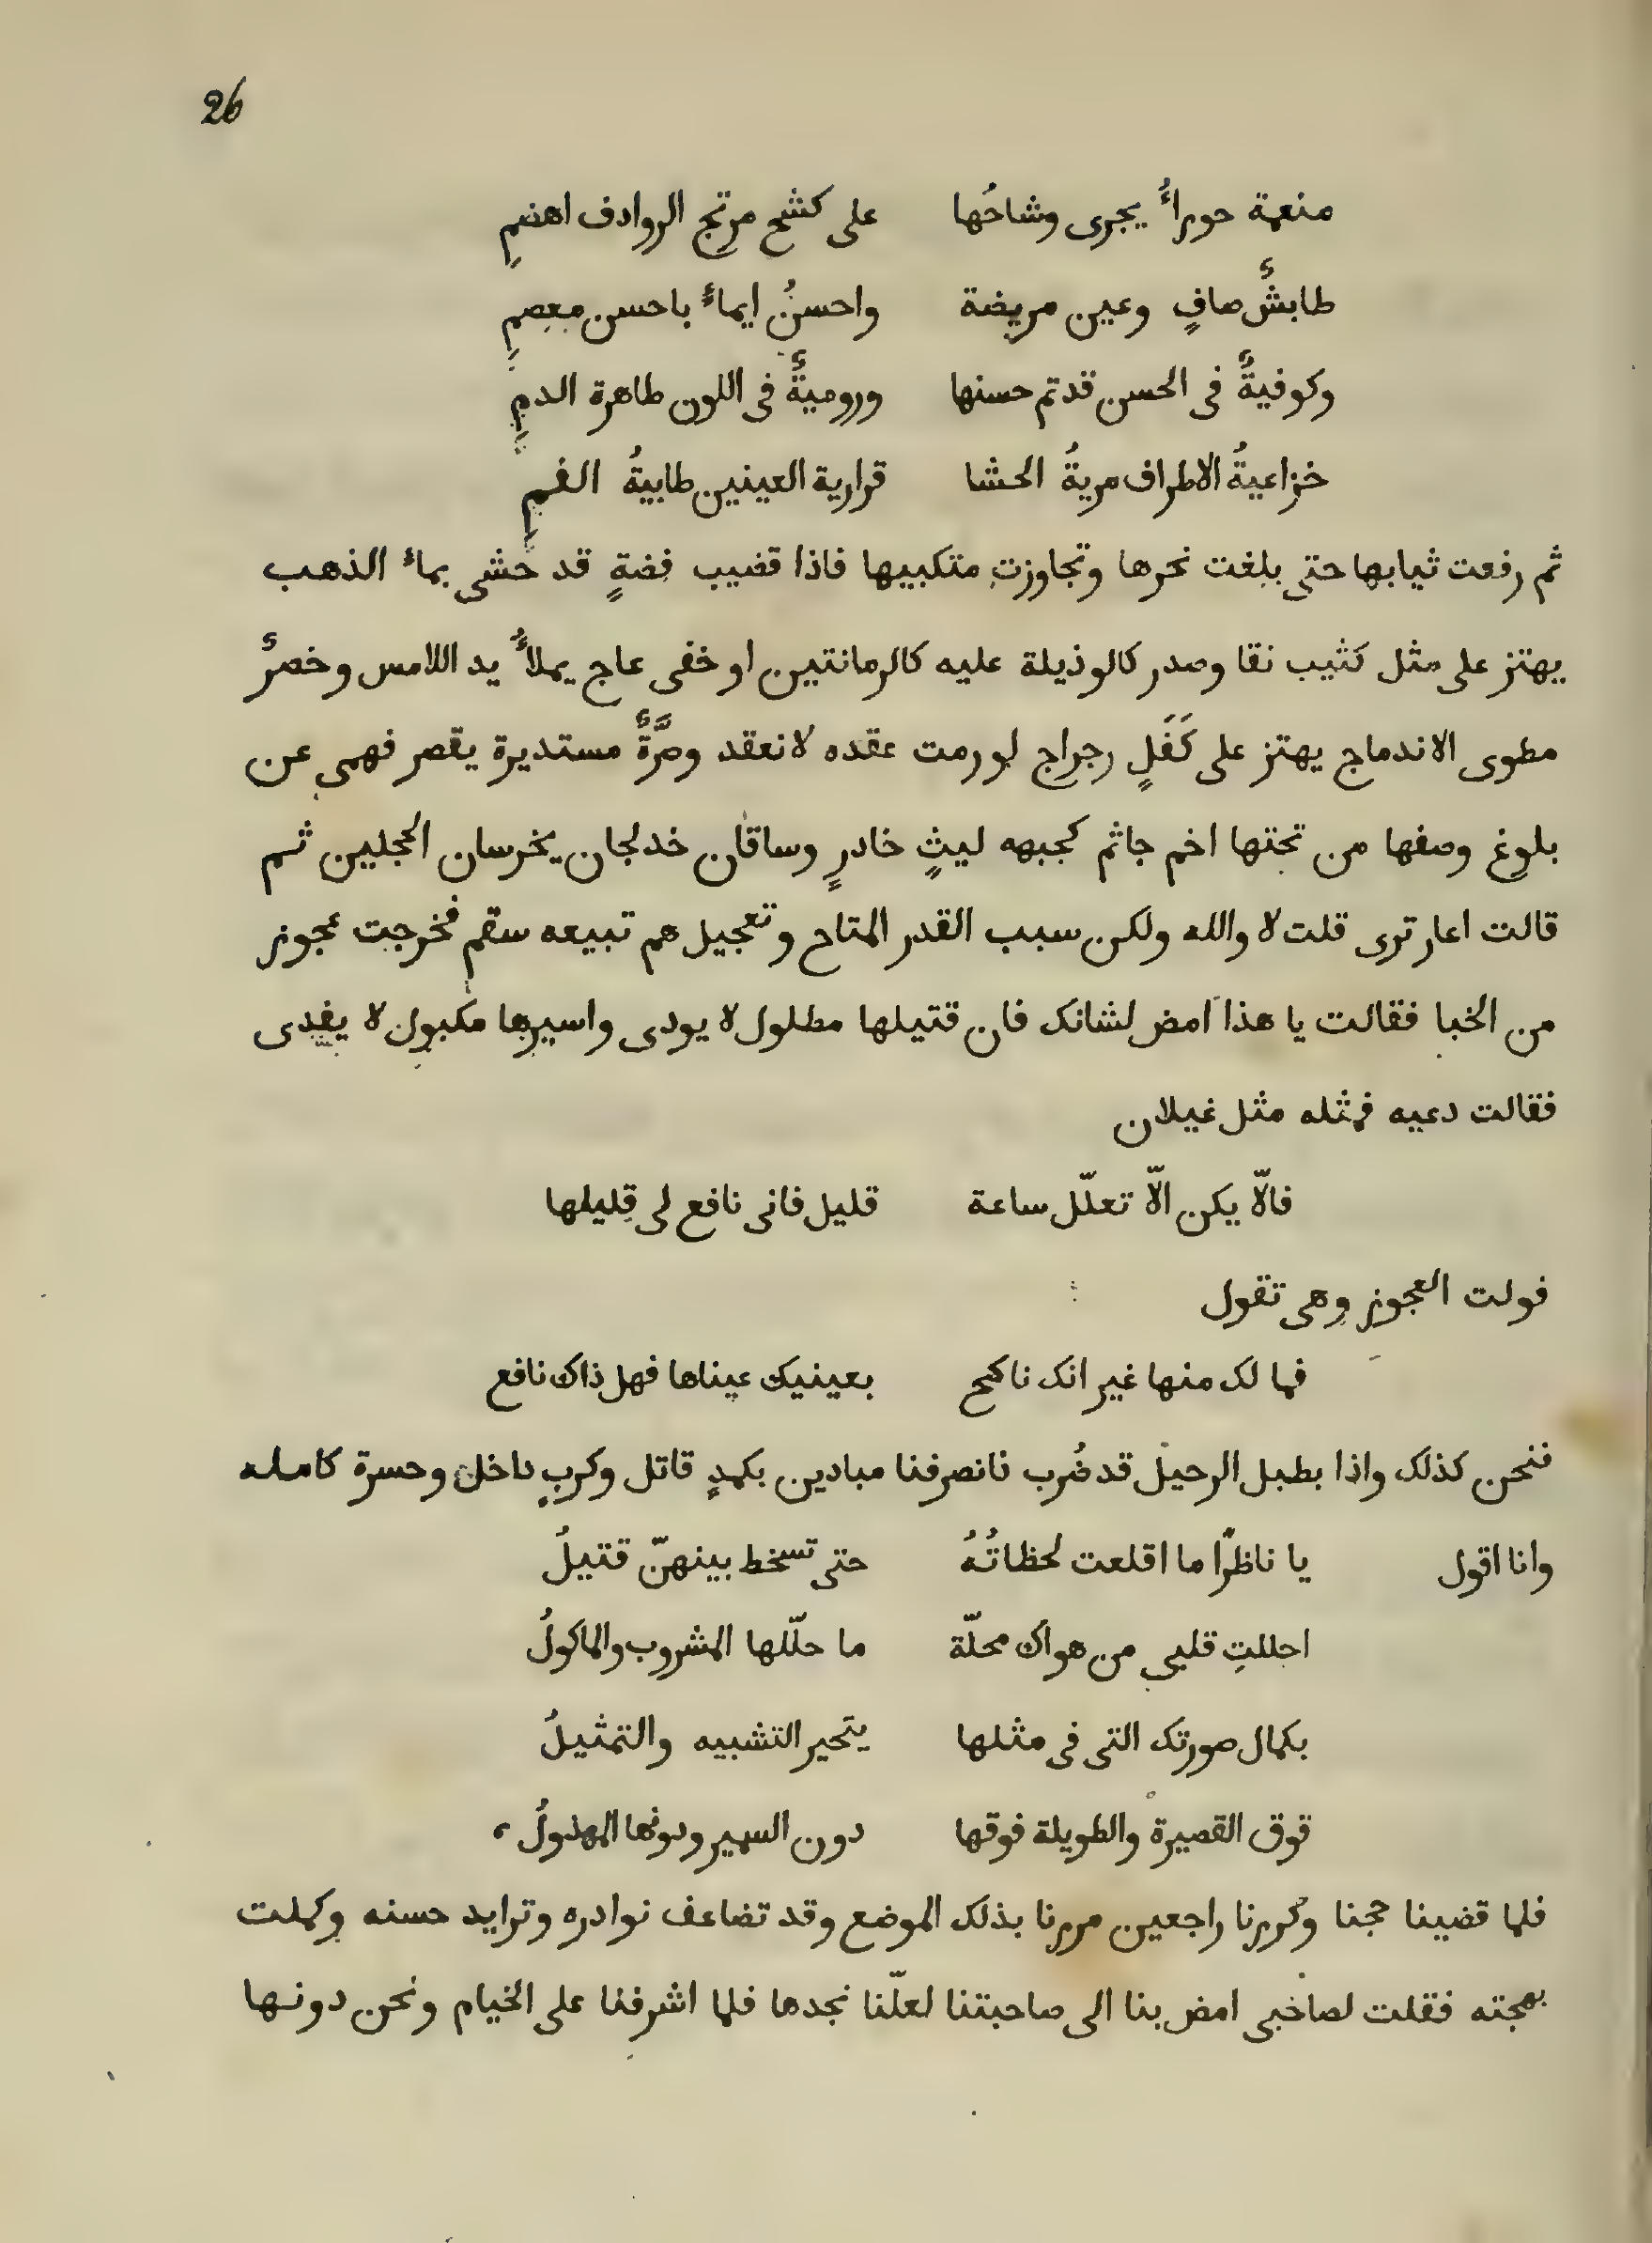 26
منعمة حوراءُ يجرى وشاحُها على كشح مرتج الروادف اهضمِ
طابشٌ صافٍ وعين مريضة واحسنُ ايماءً باحسن معصمِ
وكوفيةٌ فى الحسن قد تم حسنها وروميةٌ فى اللون طاهرة الدمِ
خزاعيةُ الاطراف مريةُ الحشا قرارية العينين طابيةُ الفمِ
ثم رفعت ثيابها حتى بلغت نحرها وتجاوزت متكبيها فاذا قضيب فضةٍ قد حشى بماء الذهب
يهتز على مثل كثيب نقا وصدر كالوذيلة عليه كالرمانتين او خفى عاج يملاءُ يد اللامس وخصرٌ
مطوى الاندماج يهتز على كَفَلٍ رجراج لو رمت عقده لانعقد وصرَّةٌ مستديرة يقصر فهمى عن
بلوغ وصفها من تحتها اخم جاثم كجبهه ليثٍ خادرٍ وساقان خدلجان يخرسان الحجلين ثم
قالت اعار ترى قلت لا والله ولكن سبب القدر المتاح وتعجيل هم تبيعه سقم فخرجت عجوز
من الخبا فقالت يا هذا امض لشانك فان قتيلها مطلول لا يودى واسيرها مكبول لا يفدى
فقالت دعيه فمثله مثل غيلان
فالّا يكن الّا تعلّل ساعة قليل فانى نافع لى قليلها
فولت العجوز وهى تقول
فما لك منها غير انك ناكح بعينيك عيناها فهل ذاك نافع
فنحن كذلك واذا بطبل الرحيل قد ضُرب فانصرفنا مبادين بكمدٍ قاتل وكربٍ داخل وحسرة كامله
وانا اقول يا ناظرًا ما اقلعت لحظاتُهُ حتى تسخط بينهنّ قتيلُ
احللتِ قلبى من هواك محلّة ما حلّلها المشروب والماكولُ
بكمال صورتك التى فى مثلها يتحير التشبيه والتمثيلُ
قوق القصيرة والطويلة فوقها دون السهير ودونها المهذولُ
فلما قضينا حجنا وكررنا راجعين مررنا بذلك الموضع وقد تضاعف نوادره وترايد حسنه وكملت
بهجته فقلت لصاحبى امض بنا الى صاحبتنا لعلّنا نجدها فلما اشرفنا على الخيام ونحن دونها